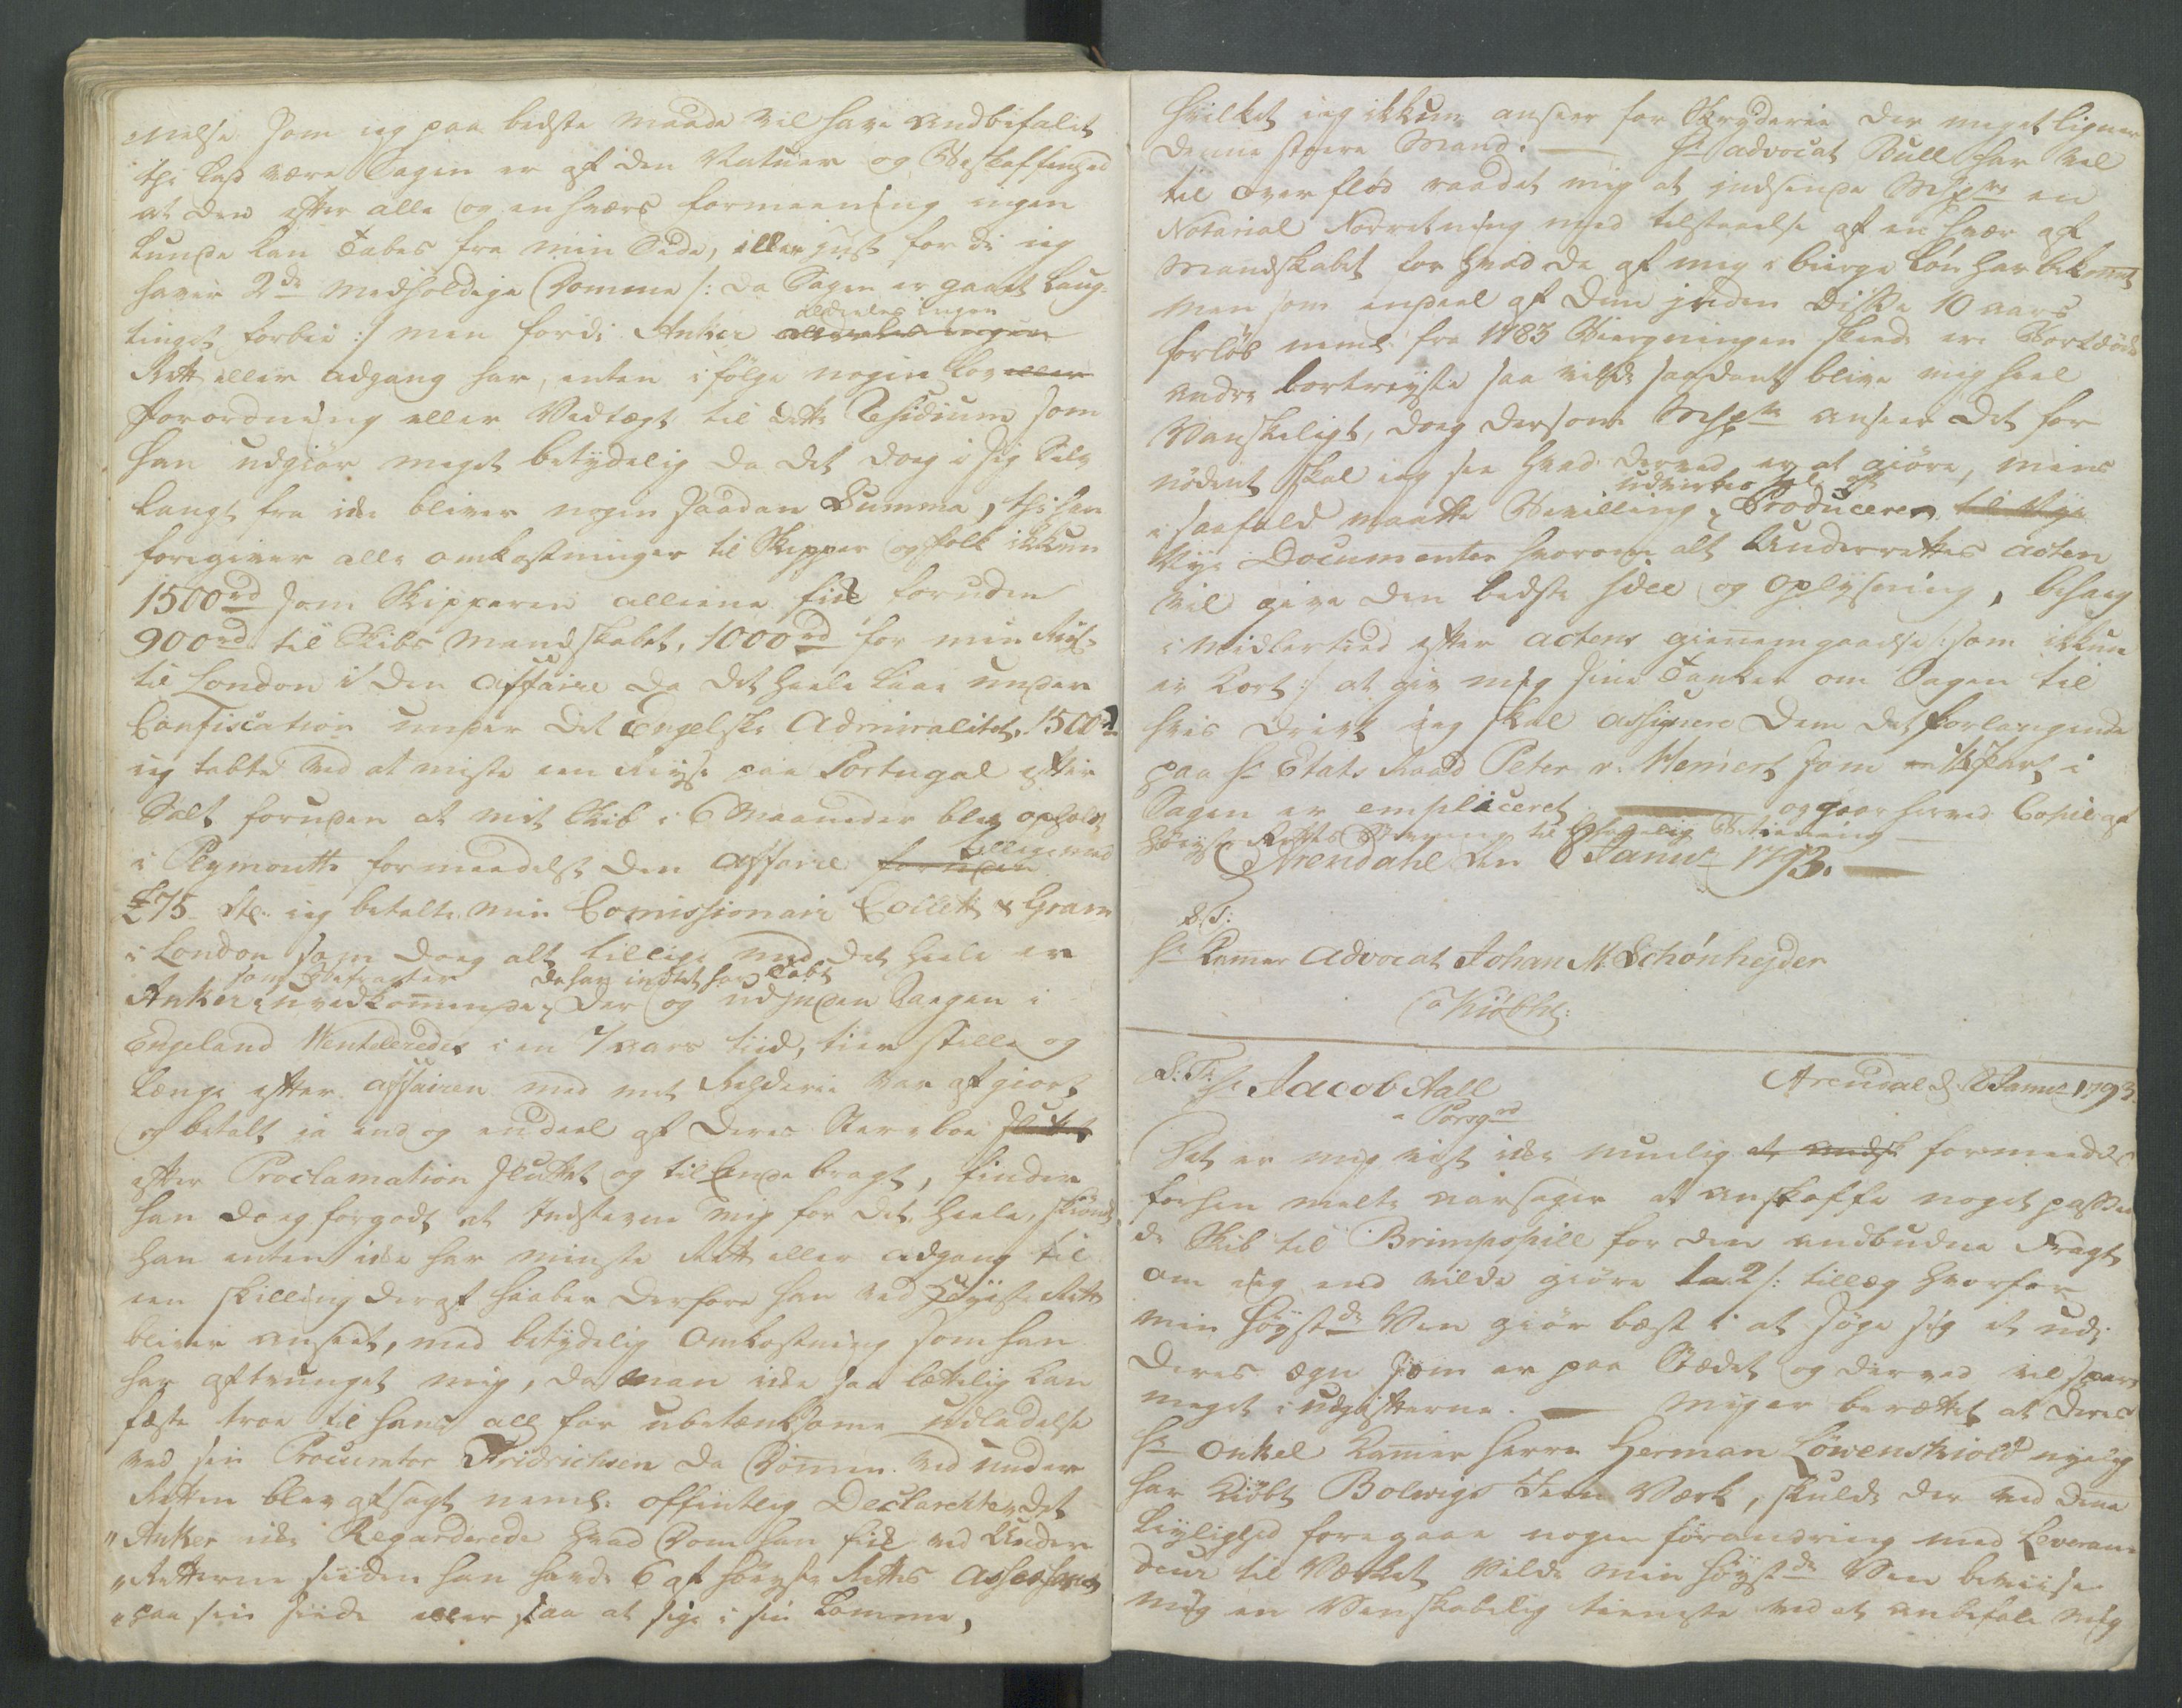 melse som ieg paa bedste maade vil have andbefalet
thi lad være Sagen er af den Natuer og Beskaffenhed
at den efter alle og en hværs formeening ingen
lunde kan tabes fra min Side, eller just fordi ieg
haver 2de medholdige Domme /: da Sagen er gaaet Laug-
tinget forbie :/ men fordi Anker aldeeles ingen
Rett eller adgang har, enten i følge nogen Lov eller
forordning eller Vedtægt til dette Residium som
han udgiør meget betydelig da det dog i sig Selv
langt fra ikke bliver nogen saadan Summa, thi han
foregiver alle omkostninger til Skipper og folk ikkun
1500rd som Skipperen alleene fik foruden
900rd til Skibs Mandskabet, 1000rd for min Reise
til London i den affaire da det heele laae under
Confiscation under det Engelske Admiralitet, 1500rd
ieg tabte ved at miste een Reyse paa Portugal efter
Salt foruden at mit Skib i 6 Maaneder blev opholdt
i Plymouth formedelst den affaire tilligemed
£75 Stl: ieg betalte min Comissionair Collett & Gram
i London som dog alt tillige med det heele er
Anker som Befragter uvedkommende, da han indtet har tabt der og uden Sagen i
Engeland Ventileredes i en 7 aars tiid, tier stille og
længe efter affairen med mit Rederie var afgiort
og betalt ja end og endeel af deres Sterboe sluttet
efter Proclamation sluttet og til Ende bragt, finder
han dog forgodt at Indstevne mig for det heele, skiønt
han enten ikke har minste Rett eller adgang til
een skilling deraf haaber derfore han ved Høyeste Rett
bliver anseet, med betydelig Omkostning som han
har aftvunget mig, da man ikke saa lettelig kan
fæste troe til hans alt for ubetænksomme udladelse
ved sin Procurator Fridrichsen da Dommen ved under
Retten blev afsagt nemlig: offentlig Declarerede, det
"Anker ikke Regarderede hvad Dom han fik ved Under
"Retterne siiden han havde 6 af høyeste Rettes Assessorer
"paa sin Siide eller saa at sige i sin Lomme,
hvilket ieg ikkun anseer for Skryderie der meget ligner
denne store Mand. — Hr advocat Bull har vel
til overflød raadet mig at indsende en
Notarial med tilstaaelse af en hvær af
Mandskabet for hvad de af mig i bierge Løn har bekommet
men som endeel af dem siden disse 10 aars
forløb neml. fra 1783 Biergningen skeede er Bortdøde
andre bortreyste saa vilde saadant blive mig heel
Vanskeligt, dog dersom anseer det for
nødent skal ieg see hvad derved er at giøre, mens
i saafald maatte Bevilling udvirkes til at Producere til Nye
Nye Documenter hvorom alt Underrettes acten
vil give den bedste Idee og Oplysning, behag
imidlertid efter actens giennemgaaelse /: som ikkun
er kort :/ at giv mig sine Tanker om Sagen til
hvis ieg skal assignere Dem det forlangende
paa Hr Etats Raad Peter v. Hemert som Part i
Sagen er empliceret. — og gaar herved Copie af
Høyeste Rettes Stevning til behagelig Betiening —
Arendahl den 8 Janur 1793. —
S: T:
Hr Kamer Advocat Johan M. Schönheyder
a Kiøbh:
S: T: Hr Jacob Aall
a Porsgrd
Arendal d. 8 Janur 1793.
Det er mig vist ikke muelig at formedelst
forhen melte aarsager at anskaffe noget passen
de Skib til Brimpspill for den andbudne Fragt
om ieg end vilde giøre 1 a 2/: tillæg hvorfor
min høystde Ven giør best i at søge sig et udi
deres egn som er paa Stædet og derved vil spare
meget i udgifterne. — Mig er berettet at deres
Hr Onkel Kamer Herre Herman Löwenskiold nylig
har kiøbt Bolwigs Jern Værk, skulde der ved denne
leylighed foregaae nogen forandring med Leveran
deur til Værket vilde min høystde Ven beviise
mig en Venskabelig tieneste ved at anbefale mig